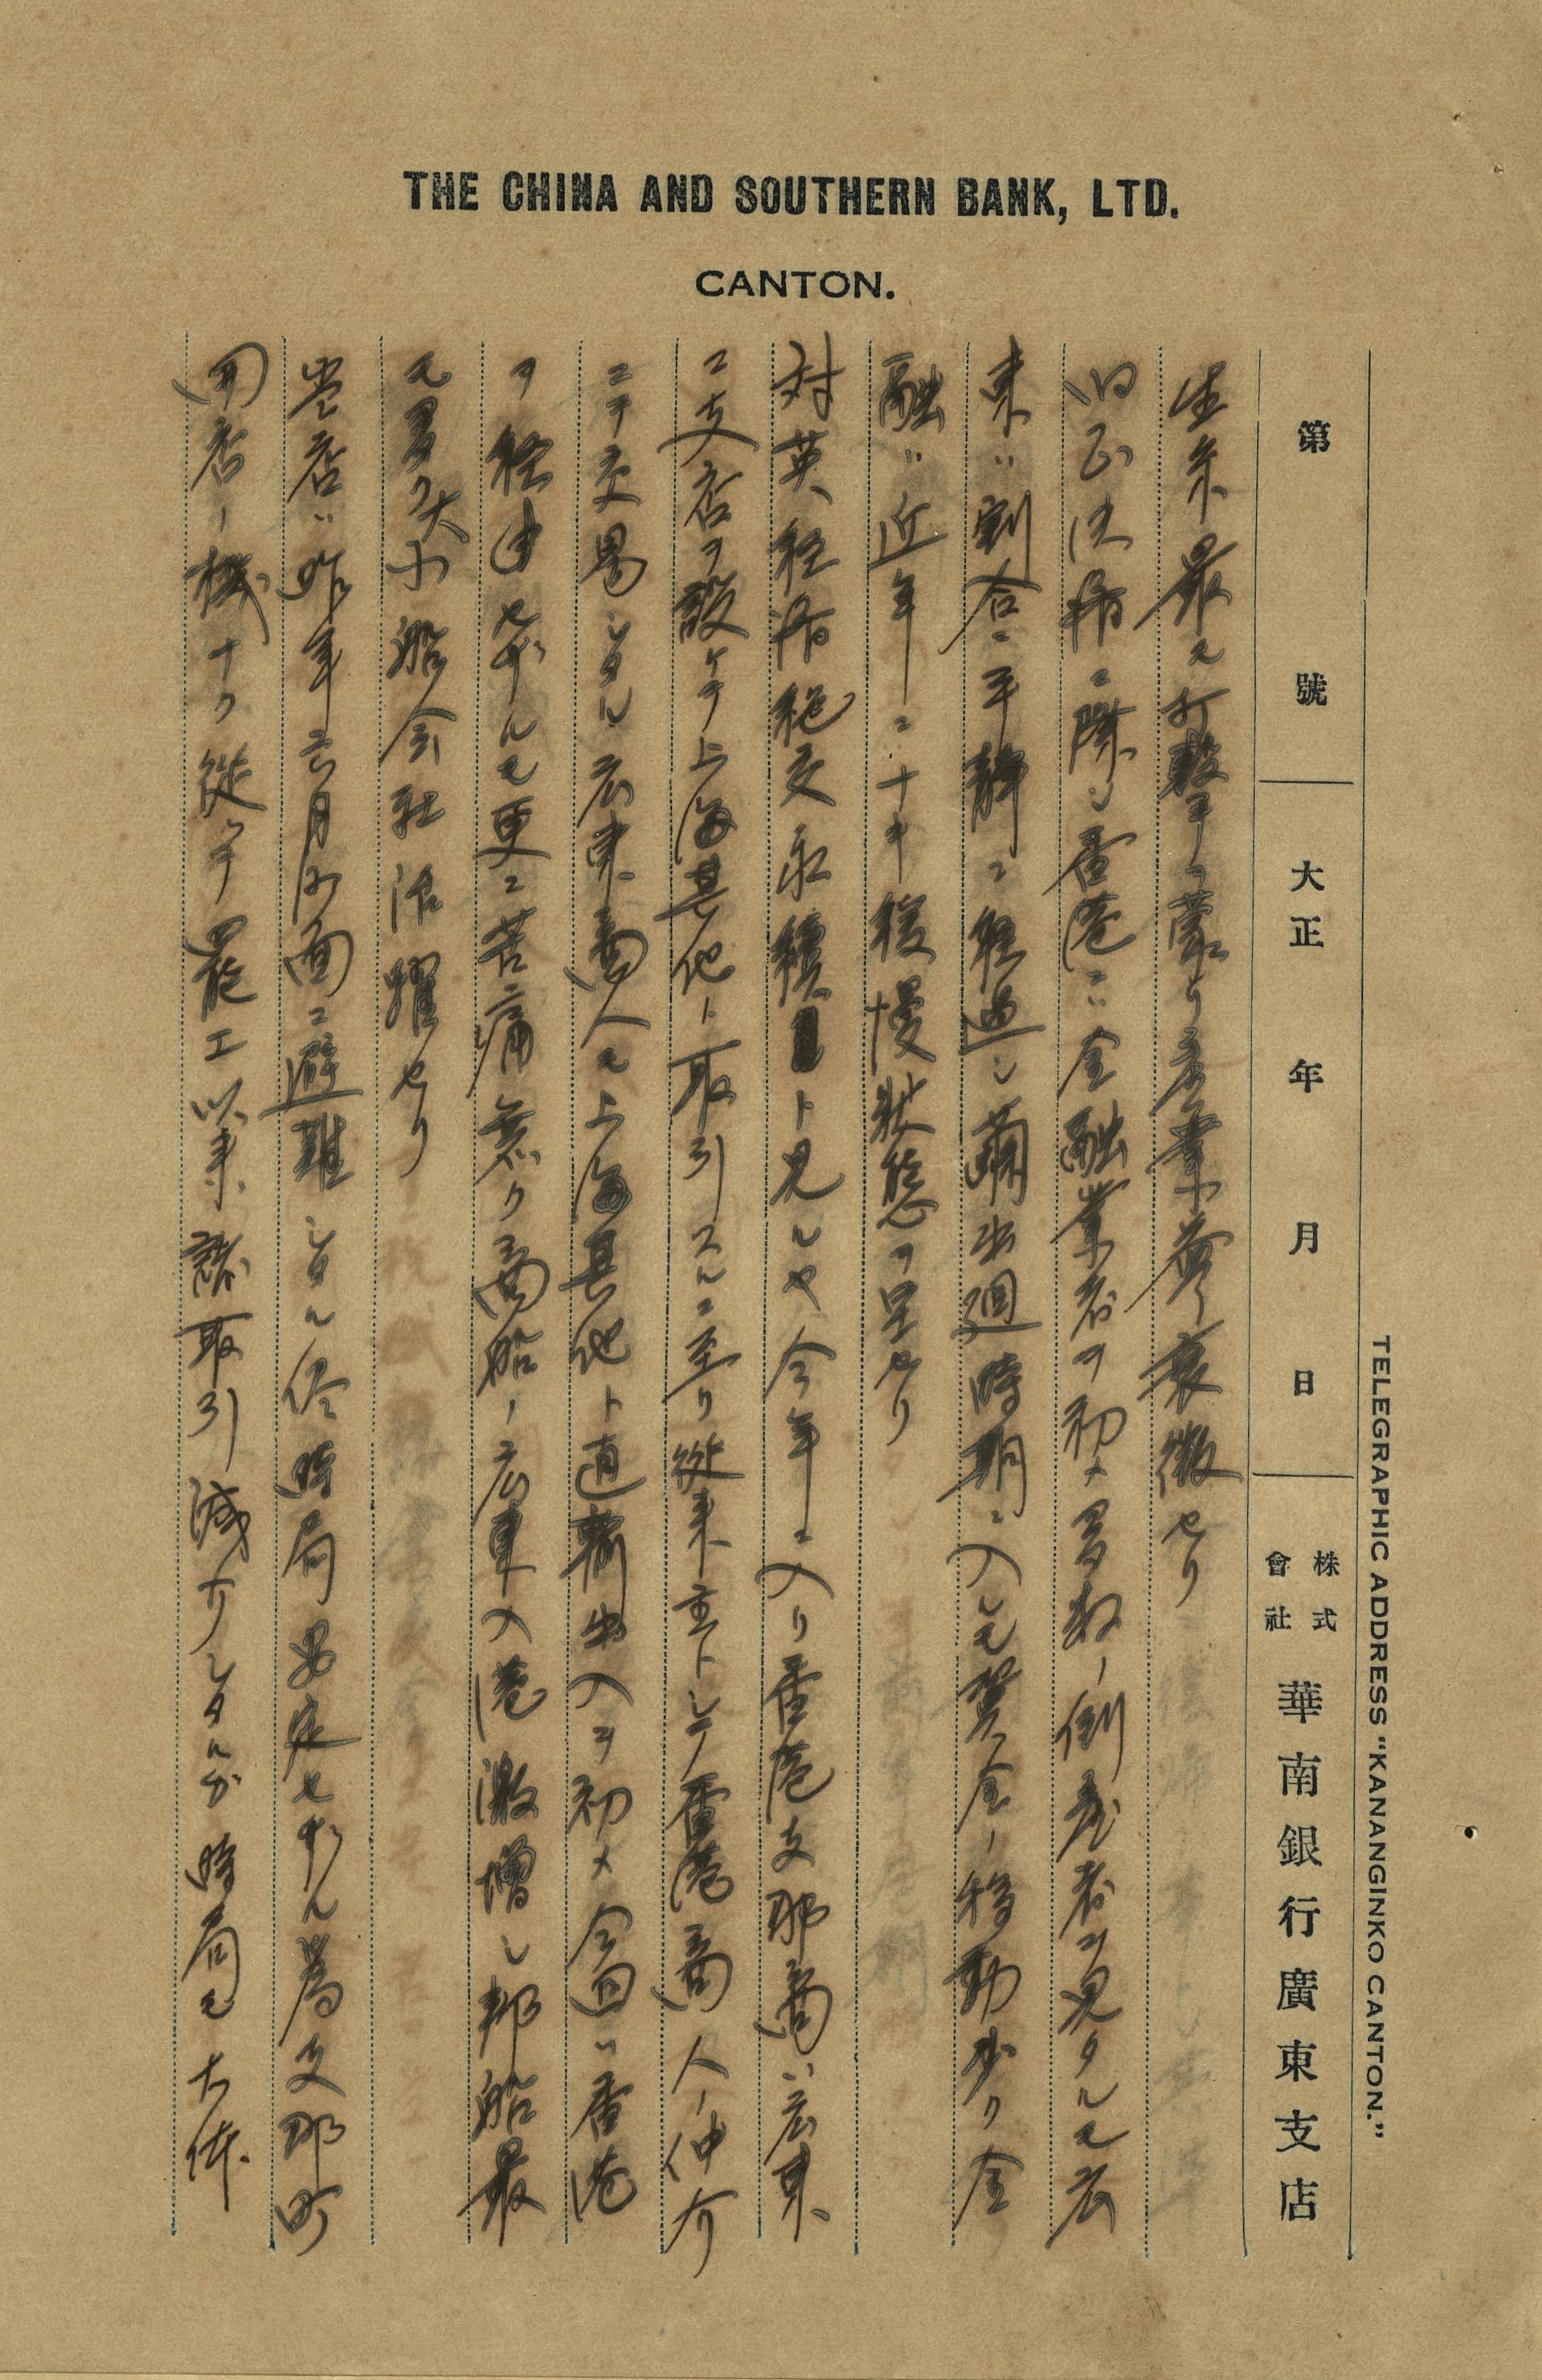 THE CHINA AND SOUTHERN BANK, LTD.
CANTON.
TELEGRAPHIC ADDRESS "KANANGINKO CANTON."
第 號 大正 年 月 日 株式會社 華南銀行廣東支店
生糸最モ打撃ヲ蒙リ産業界衰微セリ
旧正決済ニ際シ香港ニハ金融業者ヲ初メ多数ノ倒産者ヲ見タルモ広
東ハ割合ニ平静ニ経過シ繭出廻時期ニ入ルモ資金ノ移動少ク金
融ハ近年ニナキ緩慢状態ヲ呈セリ
対英経済絶交永続ト見ルヤ今年ニ入リ香港支那商ハ広東
ニ支店ヲ設ケテ上海其他ト取引スルニ至リ従来主トシテ香港商人ノ仲介
ニテ交易シタル広東商人モ上海其他ト直輸出入ヲ初メ今回ハ香港
ヲ経由セザルモ更ニ苦痛無ク商船ノ広東入港激増シ邦船最
モ多ク大小船会社活躍セリ
当店ハ昨年六月沙面ニ避難シタル侭時局安定セザル為支那町
開店ノ機ナク従テ罷工以来諸取引減少シタルガ時局モ大体